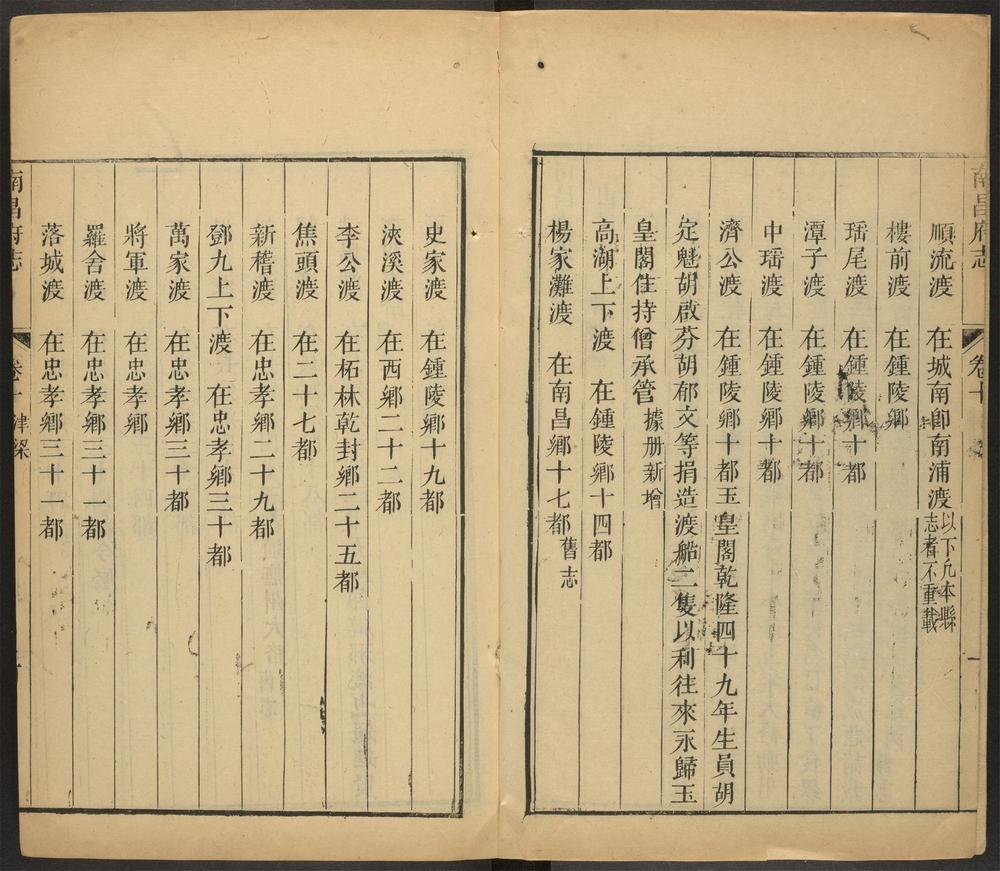 南昌府志 卷十
順流渡 在城南即南浦渡以下凡本縣志者不重載
樓前渡 在鍾陵鄉
瑶尾渡 在鍾陵鄉十都
潭子渡 在鍾陵鄉十都
中瑶渡 在鍾陵鄉十都
濟公渡 在鍾陵鄉十都玉皇閣乾隆四十九年生員胡
定魁胡啟芬胡郁文等捐造渡船二隻以利往來永歸玉
皇閣住持僧承管據册新增
高湖上下渡 在鍾陵鄉十四都
楊家灘渡 在南昌鄉十七都舊志
史家渡 在鍾陵鄉十九都
浹溪渡 在西鄉二十二都
李公渡 在柘林乾封鄉二十五都
焦頭渡 在二十七都
新稽渡 在忠孝鄉二十九都
鄧九上下渡 在忠孝鄉三十都
萬家渡 在忠孝鄉三十都
將軍渡 在忠孝鄉
羅舍渡 在忠孝鄉三十一都
落城渡 在忠孝鄉三十一都
南昌府志 卷十 津梁